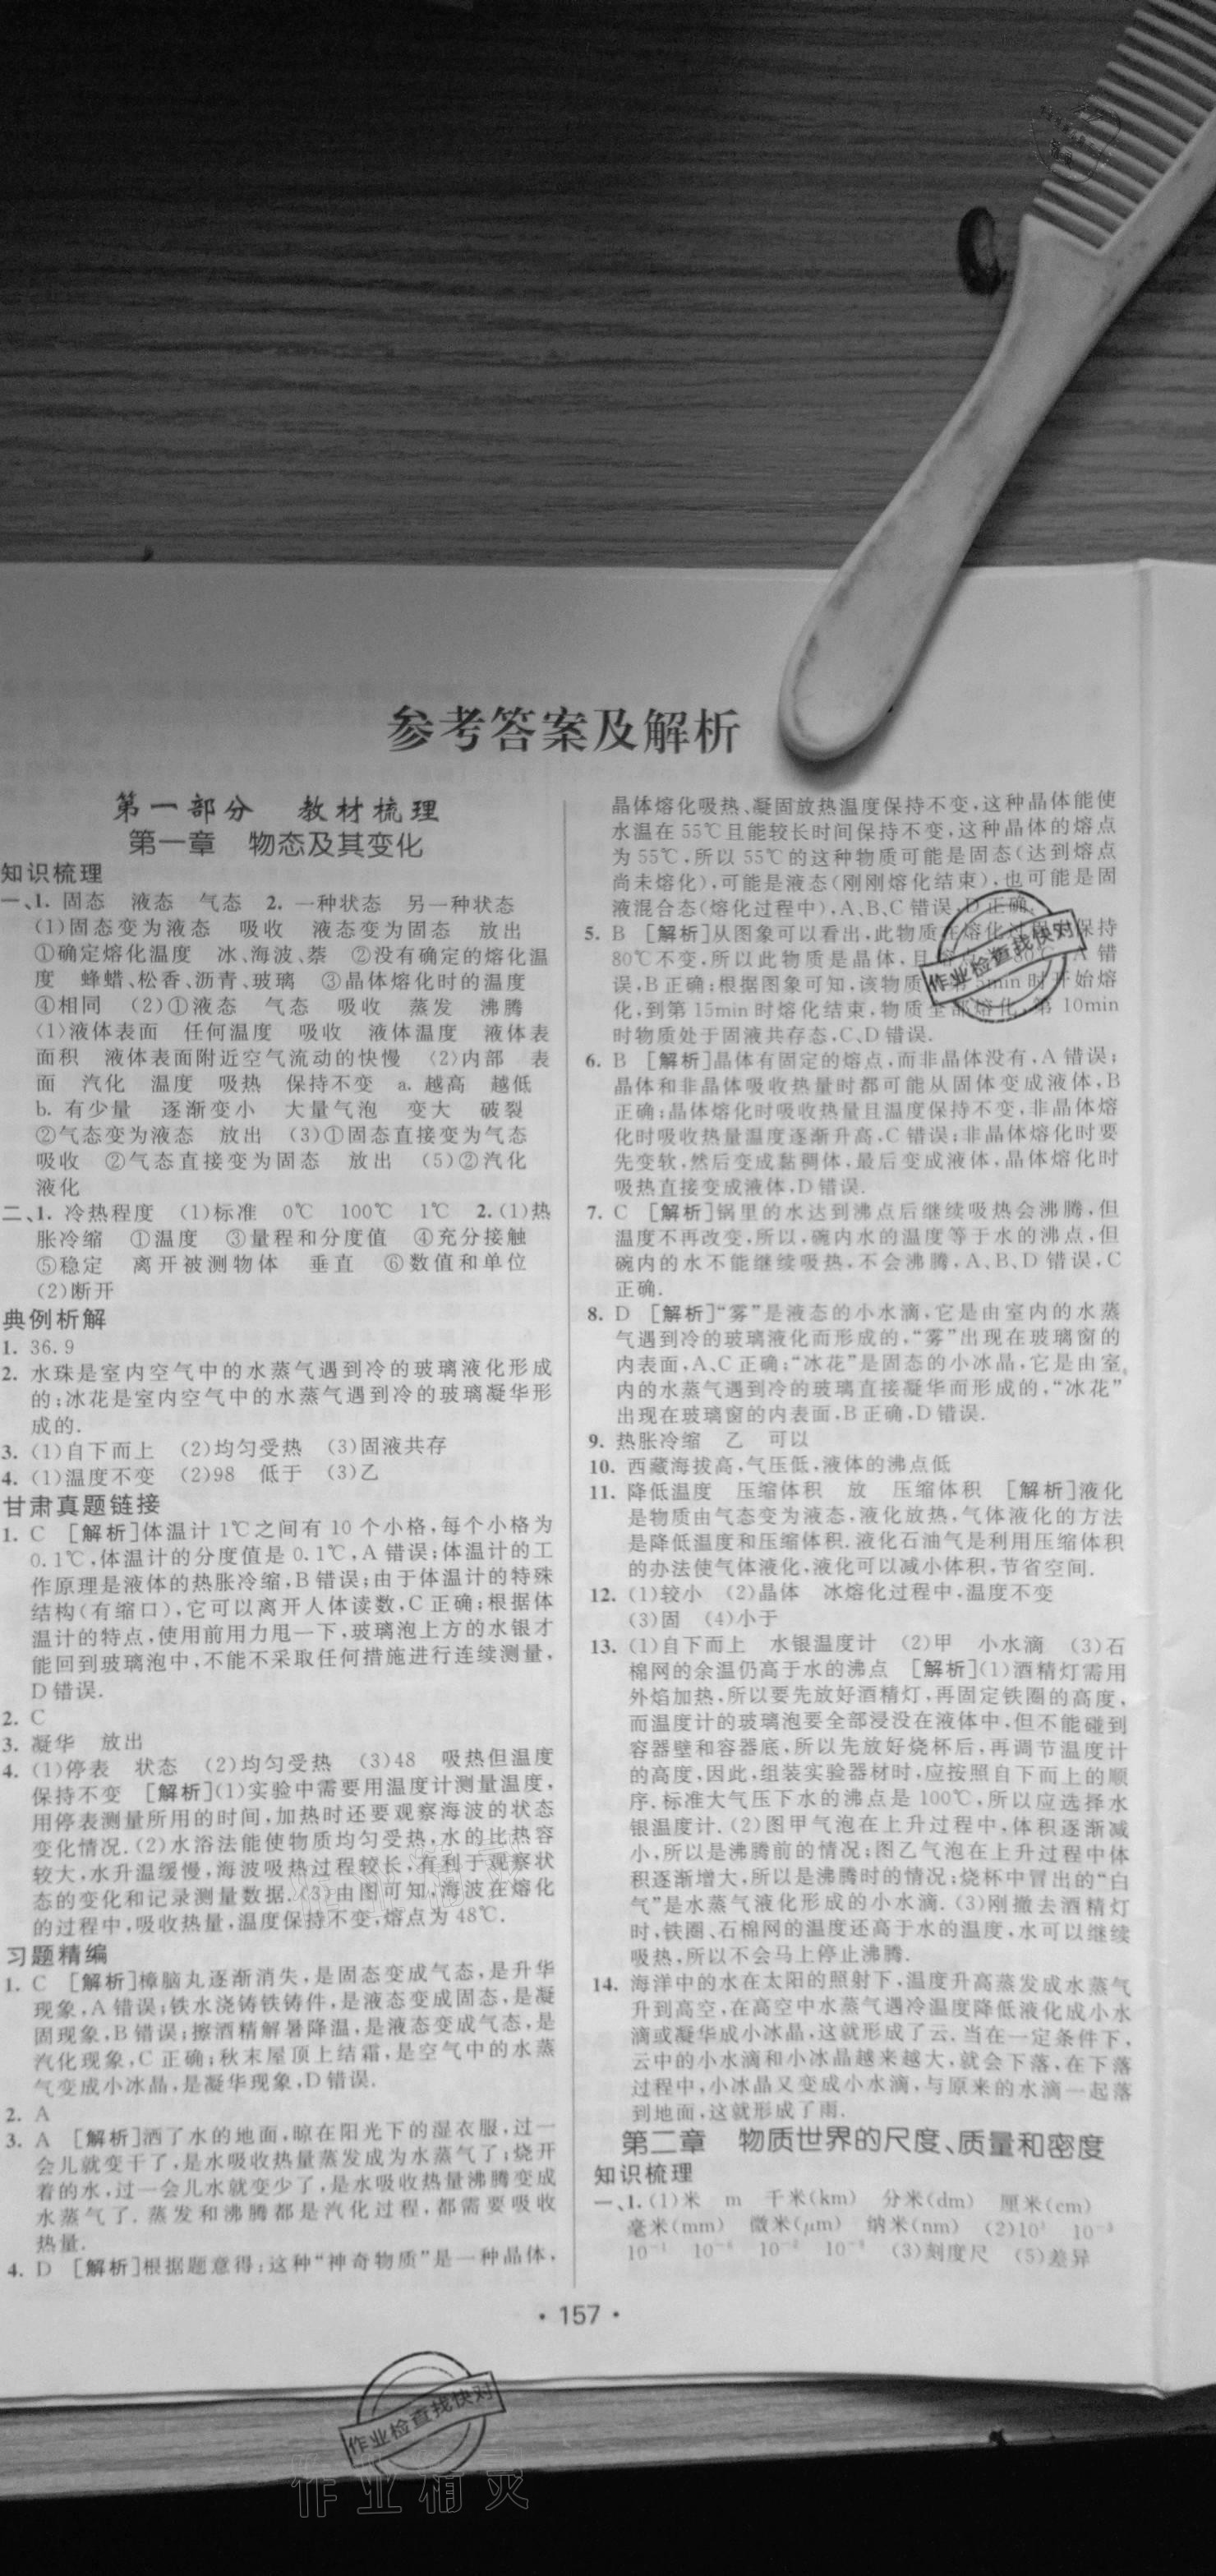 参考答案及解析
第一部分　教材梳理
第一章　物态及其变化
知识梳理
一、1. 固态　液态　气态　2. 一种状态　另一种状态
(1)固态变为液态　吸收　液态变为固态　放出
①确定熔化温度　冰、海波、萘　②没有确定的熔化温
度　蜂蜡、松香、沥青、玻璃　③晶体熔化时的温度
④相同　(2)①液态　气态　吸收　蒸发　沸腾
(1)液体表面　任何温度　吸收　液体温度　液体表
面积　液体表面附近空气流动的快慢　(2)内部　表
面　汽化　温度　吸热　保持不变　a. 越高　越低
b. 有少量　逐渐变小　大量气泡　变大　破裂
②气态变为液态　放出　(3)①固态直接变为气态
吸收　②气态直接变为固态　放出　(5)②汽化
液化
二、1. 冷热程度　(1)标准　0℃　100℃　1℃　2. (1)热
胀冷缩　①温度　③量程和分度值　④充分接触
⑤稳定　离开被测物体　垂直　⑥数值和单位
(2)断开
典例析解
1. 36.9
2. 水珠是室内空气中的水蒸气遇到冷的玻璃液化形成
的;冰花是室内空气中的水蒸气遇到冷的玻璃凝华形
成的.
3. (1)自下而上　(2)均匀受热　(3)固液共存
4. (1)温度不变　(2)98　低于　(3)乙
甘肃真题链接
1. C　[解析]体温计1℃之间有10个小格,每个小格为
0.1℃,体温计的分度值是0.1℃,A错误;体温计的工
作原理是液体的热胀冷缩,B错误;由于体温计的特殊
结构(有缩口),它可以离开人体读数,C正确;根据体
温计的特点,使用前用力甩一下,玻璃泡上方的水银才
能回到玻璃泡中,不能不采取任何措施进行连续测量,
D错误.
2. C
3. 凝华　放出
4. (1)停表　状态　(2)均匀受热　(3)48　吸热但温度
保持不变　[解析](1)实验中需要用温度计测量温度,
用停表测量所用的时间,加热时还要观察海波的状态
变化情况.(2)水浴法能使物质均匀受热,水的比热容
较大,水升温缓慢,海波吸热过程较长,有利于观察状
态的变化和记录测量数据.(3)由图可知,海波在熔化
的过程中,吸收热量,温度保持不变,熔点为48℃.
习题精编
1. C　[解析]樟脑丸逐渐消失,是固态变成气态,是升华
现象,A错误;铁水浇铸铁铸件,是液态变成固态,是凝
固现象,B错误;擦酒精解暑降温,是液态变成气态,是
汽化现象,C正确;秋末屋顶上结霜,是空气中的水蒸
气变成小冰晶,是凝华现象,D错误.
2. A
3. A　[解析]洒了水的地面,晾在阳光下的湿衣服,过一
会儿就变干了,是水吸收热量蒸发成为水蒸气了;烧开
着的水,过一会儿水就变少了,是水吸收热量沸腾变成
水蒸气了.蒸发和沸腾都是汽化过程,都需要吸收
热量.
4. D　[解析]根据题意得:这种“神奇物质”是一种晶体,
晶体熔化吸热、凝固放热温度保持不变,这种晶体能使
水温在55℃且能较长时间保持不变,这种晶体的熔点
为55℃,所以55℃的这种物质可能是固态(达到熔点
尚未熔化),可能是液态(刚刚熔化结束),也可能是固
液混合态(熔化过程中),A、B、C错误,D正确.
5. B　[解析]从图象可以看出,此物质在熔化过程中保持
80℃不变,所以此物质是晶体,且熔点为80℃,A错
误,B正确;根据图象可知,该物质从第5min时开始熔
化,到第15min时熔化结束,物质全部熔化,第10min
时物质处于固液共存态,C、D错误.
6. B　[解析]晶体有固定的熔点,而非晶体没有,A错误;
晶体和非晶体吸收热量时都可能从固体变成液体,B
正确;晶体熔化时吸收热量且温度保持不变,非晶体熔
化时吸收热量温度逐渐升高,C错误;非晶体熔化时要
先变软,然后变成黏稠体,最后变成液体,晶体熔化时
吸热直接变成液体,D错误.
7. C　[解析]锅里的水达到沸点后继续吸热会沸腾,但
温度不再改变,所以,碗内水的温度等于水的沸点,但
碗内的水不能继续吸热,不会沸腾,A、B、D错误,C
正确.
8. D　[解析]“雾”是液态的小水滴,它是由室内的水蒸
气遇到冷的玻璃液化而形成的,“雾”出现在玻璃窗的
内表面,A、C正确;“冰花”是固态的小冰晶,它是由室
内的水蒸气遇到冷的玻璃直接凝华而形成的,“冰花”
出现在玻璃窗的内表面,B正确,D错误.
9. 热胀冷缩　乙　可以
10. 西藏海拔高,气压低,液体的沸点低
11. 降低温度　压缩体积　放　压缩体积　[解析]液化
是物质由气态变为液态,液化放热,气体液化的方法
是降低温度和压缩体积.液化石油气是利用压缩体积
的办法使气体液化,液化可以减小体积,节省空间.
12. (1)较小　(2)晶体　冰熔化过程中,温度不变
(3)固　(4)小于
13. (1)自下而上　水银温度计　(2)甲　小水滴　(3)石
棉网的余温仍高于水的沸点　[解析](1)酒精灯需用
外焰加热,所以要先放好酒精灯,再固定铁圈的高度,
而温度计的玻璃泡要全部浸没在液体中,但不能碰到
容器壁和容器底,所以先放好烧杯后,再调节温度计
的高度,因此,组装实验器材时,应按照自下而上的顺
序.标准大气压下水的沸点是100℃,所以应选择水
银温度计.(2)图甲气泡在上升过程中,体积逐渐减
小,所以是沸腾前的情况;图乙气泡在上升过程中体
积逐渐增大,所以是沸腾时的情况;烧杯中冒出的“白
气”是水蒸气液化形成的小水滴.(3)刚撤去酒精灯
时,铁圈、石棉网的温度还高于水的温度,水可以继续
吸热,所以不会马上停止沸腾.
14. 海洋中的水在太阳的照射下,温度升高蒸发成水蒸气
升到高空,在高空中水蒸气遇冷温度降低液化成小水
滴或凝华成小冰晶,这就形成了云.当在一定条件下,
云中的小水滴和小冰晶越来越大,就会下落,在下落
过程中,小冰晶又变成小水滴,与原来的水滴一起落
到地面,这就形成了雨.
第二章　物质世界的尺度、质量和密度
知识梳理
一、1. (1)米　m　千米(km)　分米(dm)　厘米(cm)
毫米(mm)　微米(μm)　纳米(nm)　(2)10³　10⁻³
10⁻¹　10⁻⁶　10⁻²　10⁻⁹　(3)刻度尺　(5)差异
• 157 •
作业检查找快对
作业检查找快对
作业精灵